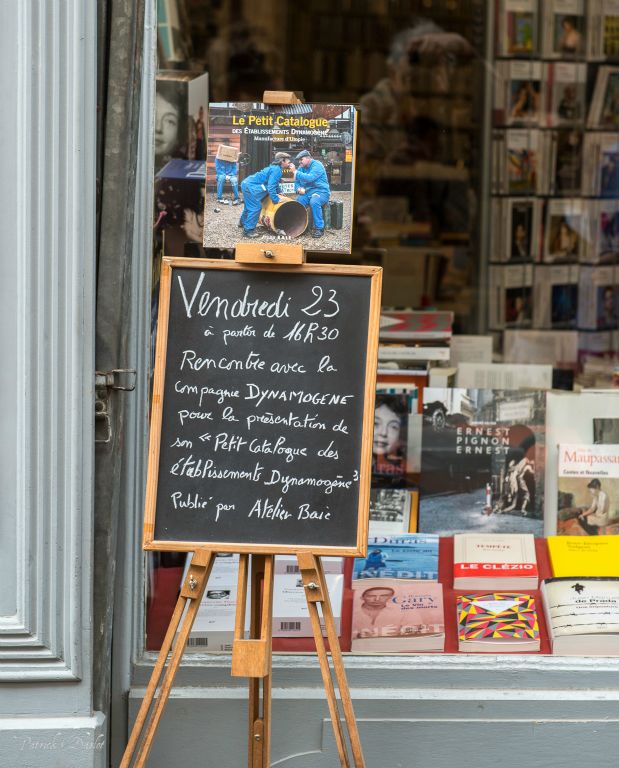 Le Petit Catalogue
DES ÉTABLISSEMENTS DYNAMOGÈNE
Manufacture d'Utopie
Vendredi 23
à partir de 16h30
Rencontre avec la
compagnie DYNAMOGENE
pour la présentation de
son "Petit Catalogue des
établissements Dynamogène"
Publié par Atelier Baie
ERNEST
PIGNON
ERNEST
Maupassant
Contes et Nouvelles
Duras
INÉDIT
TEMPÊTE
LE CLÉZIO
Gary
Le Vin
des morts
INÉDIT
de Prada